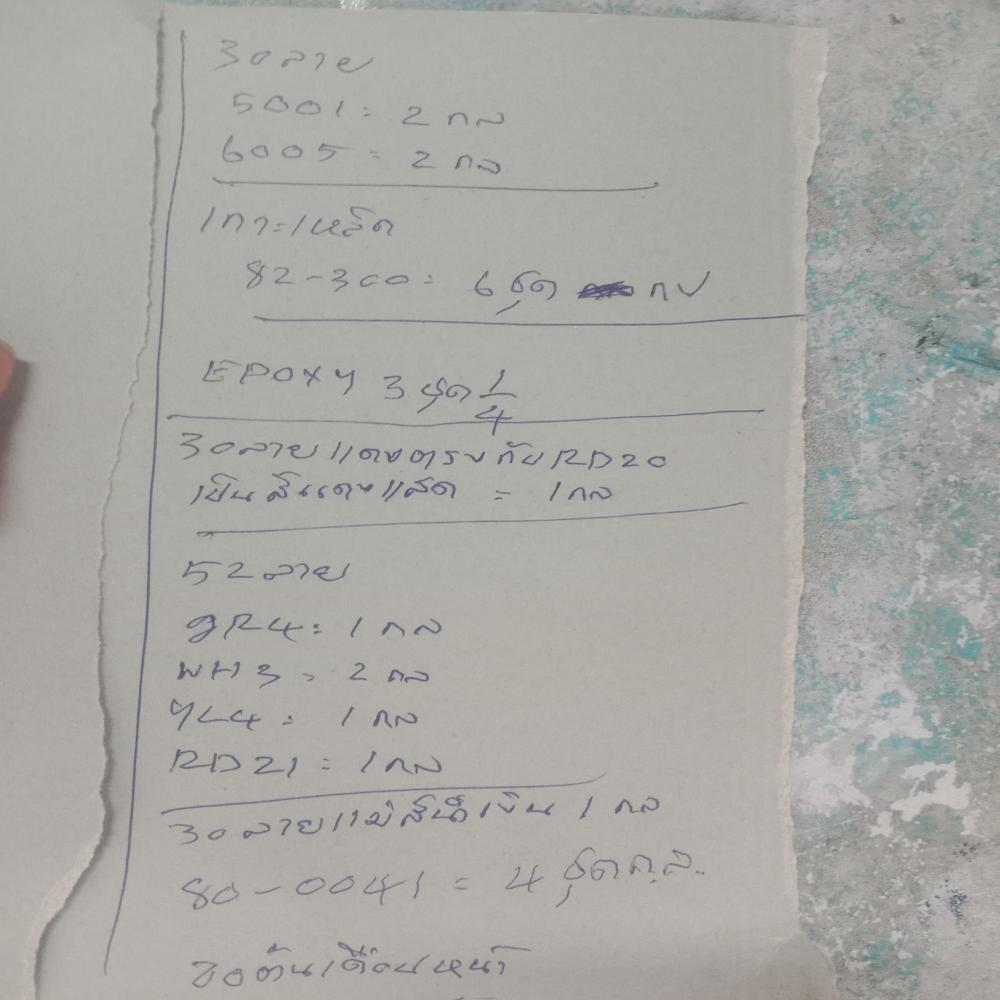 30ลาย
5001 = 2 กล
6005 = 2 กล
เกาะเหล็ก
82-300 = 6 ชุด กป
EPOXY 3 ชุด 1/4
30ลายแดงตรงกับRD20
เป็นสีแดงแสด = 1กล
52ลาย
gR4 = 1 กล
WH3 = 2 กล
YL4 = 1 กล
RD21 = 1กล
30ลายแม่สีน้ำเงิน 1 กล
80-0041 = 4 ชุดก.ล.
ขอต้นเดือนหน้า